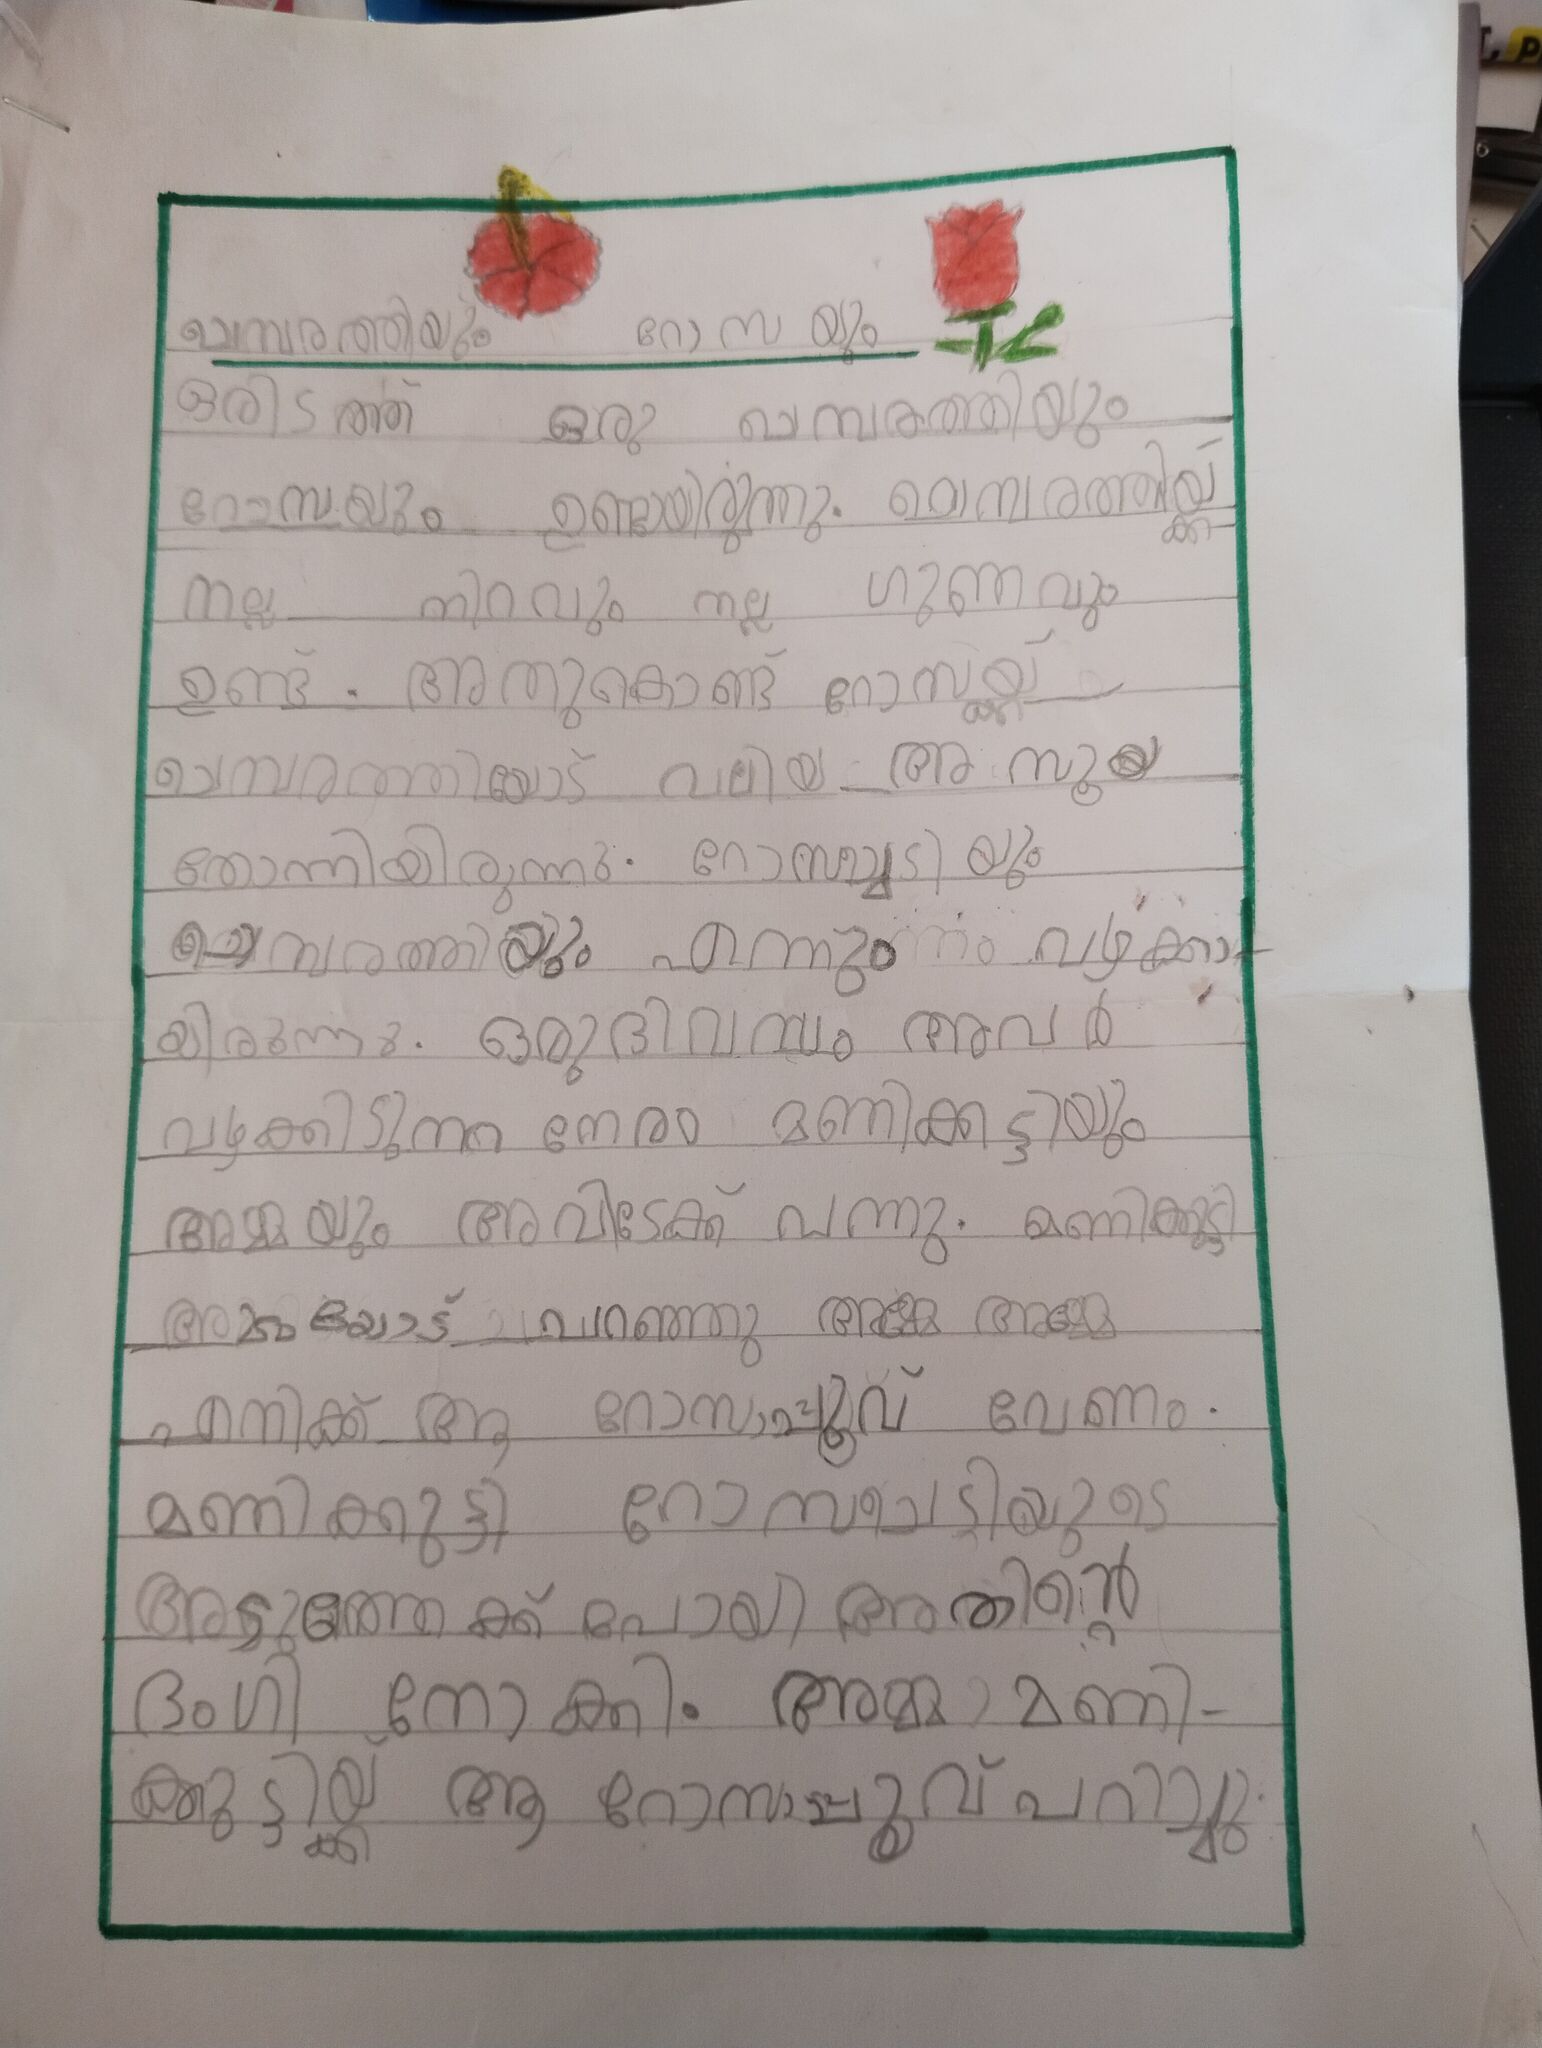 ചെമ്പരത്തിയും റോസയും
ഒരിടത്ത് ഒരു ചെമ്പരത്തിയും
റോസയും ഉണ്ടായിരുന്നു. ചെമ്പരത്തിയ്ക്ക്
നല്ല നിറവും നല്ല ഗുണവും
ഉണ്ട്. അതുകൊണ്ട് റോസയ്ക്ക്
ചെമ്പരത്തിയോട് വലിയ അസൂയ
തോന്നിയിരുന്നു. റോസച്ചെടിയും
ചെമ്പരത്തിയും എന്നും വഴക്കാ-
യിരുന്നു. ഒരുദിവസം അവർ
വഴക്കിടുന്ന നേരം മണിക്കുട്ടിയും
അമ്മയും അവിടേക്ക് വന്നു. മണിക്കുട്ടി
അമ്മയോട് പറഞ്ഞു അമ്മേ അമ്മേ
എനിക്ക് ആ റോസാപ്പൂവ് വേണം.
മണിക്കുട്ടി റോസചെടിയുടെ
അടുത്തേക്ക് പോയി അതിന്റെ
ഭംഗി നോക്കി. അമ്മ മണി-
ക്കുട്ടിയ്ക്ക് ആ റോസാപ്പൂവ് പറിച്ചു.